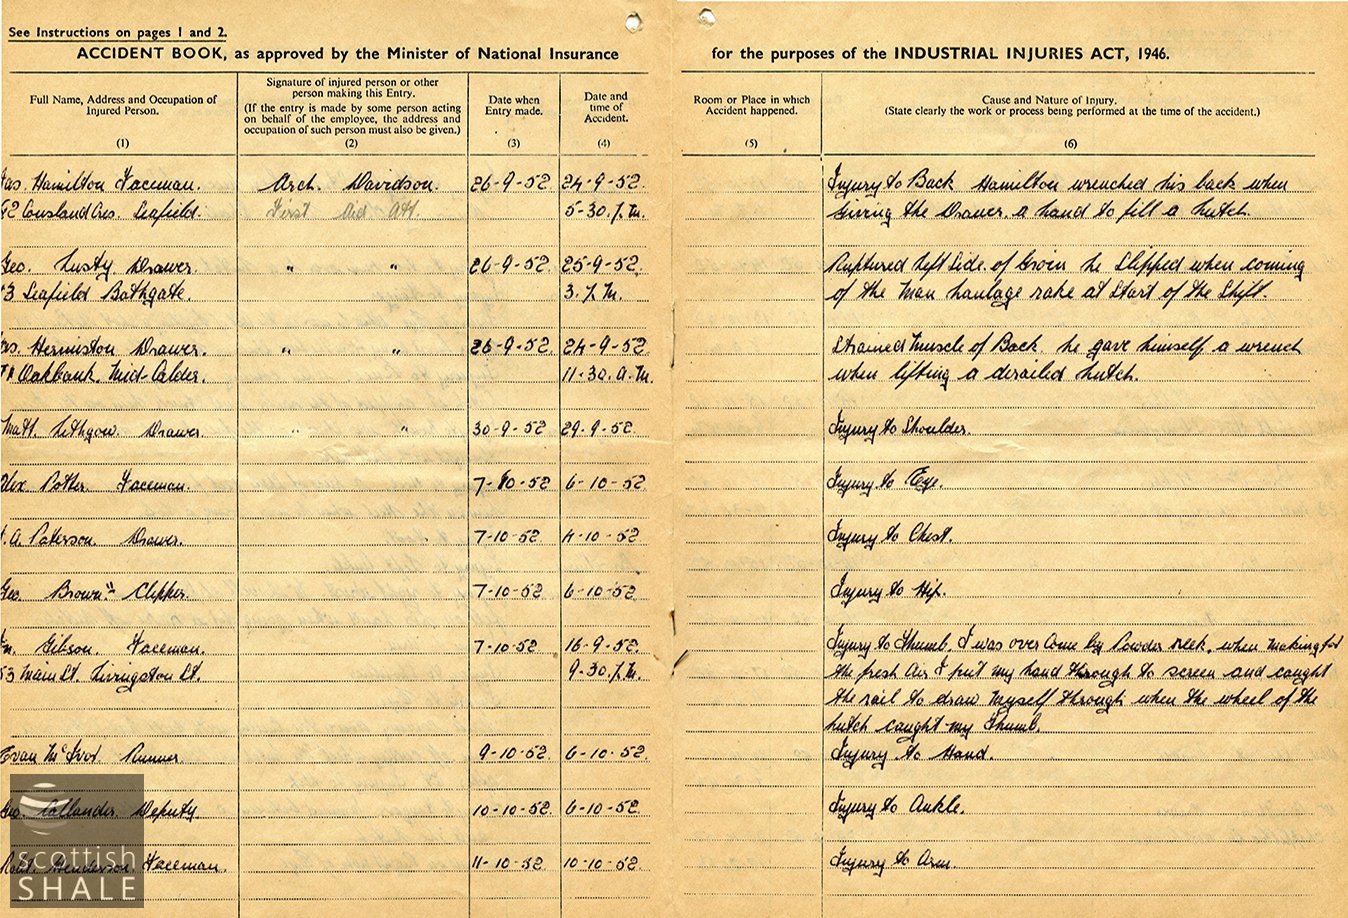 See Instructions on pages 1 and 2.
ACCIDENT BOOK, as approved by the Minister of National Insurance for the purposes of the INDUSTRIAL INJURIES ACT, 1946.
Full Name, Address and Occupation of Injured Person. (1)
Signature of injured person or other person making this Entry. (If the entry is made by some person acting on behalf of the employee, the address and occupation of such person must also be given.) (2)
Date when Entry made. (3)
Date and time of Accident. (4)
Room or Place in which Accident happened. (5)
Cause and Nature of Injury. (State clearly the work or process being performed at the time of the accident.) (6)
Jas. Hamilton Faceman. Arch. Davidson. 26-9-52 24-9-52. Injury to Back Hamilton wrenched his back when
52 Cousland Cres. Seafield. First Aid Att. 5-30.P.M. giving the Drawer a hand to fill a hutch.
Geo. Lusty Drawer. " " 26-9-52 25-9-52. Ruptured left Side of Groin he Slipped when coming
Seafield Bathgate. 3.P.M. of the Man haulage rake at Start of the Shift.
Jas. Hermiston Drawer. " " 26-9-52. 24-9-52. Strained Muscle of Back. he gave himself a wrench
Oakbank. Mid-Calder. 11-30.A.M. when lifting a derailed hutch.
Matt. Lithgow. Drawer. " " 30-9-52 29-9-52. Injury to Shoulder.
Alex. Potter. Faceman. 7-10-52 6-10-52 Injury to Eye.
A. Paterson. Drawer. 7-10-52 4-10-52 Injury to Chest.
Geo. Brown " Clipper. 7-10-52 6-10-52. Injury to Hip.
Gibson. Faceman. 7-10-52 16-9-52. Injury to Thumb. I was over come by Powder reek. when making for
53 Main St. Livingston St. 9-30.P.M. the fresh Air I put my hand through to screen and caught
the rail to draw myself through when the wheel of the
hutch caught my Thumb.
Evan McIvor. Runner. 9-10-52 6-10-52. Injury to Hand.
Geo. Callander. Deputy. 10-10-52. 6-10-52. Injury to Ankle.
Robt. Henderson. Faceman. 11-10-52 10-10-52 Injury to Arm.
scottish
SHALE